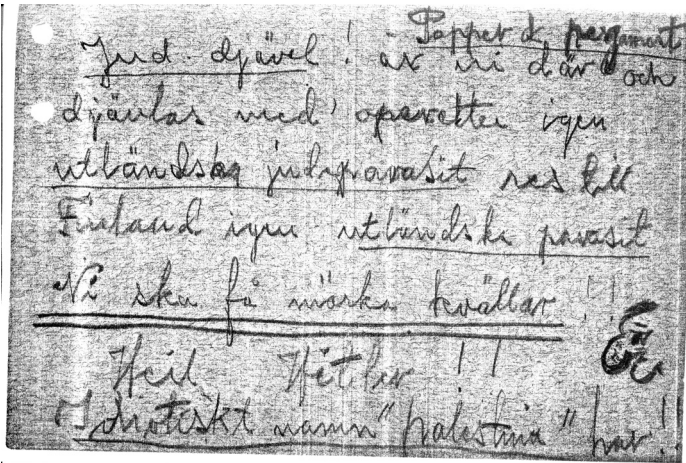 pergament
Jud-djävel! är ni där och
djävlas med operetter igen
utländska judeparasit res till
Finland igen utländska parasit
Ni ska få mörka kvällar !!
Heil Hitler !!
Idiotiskt namn "Palestina" har!!